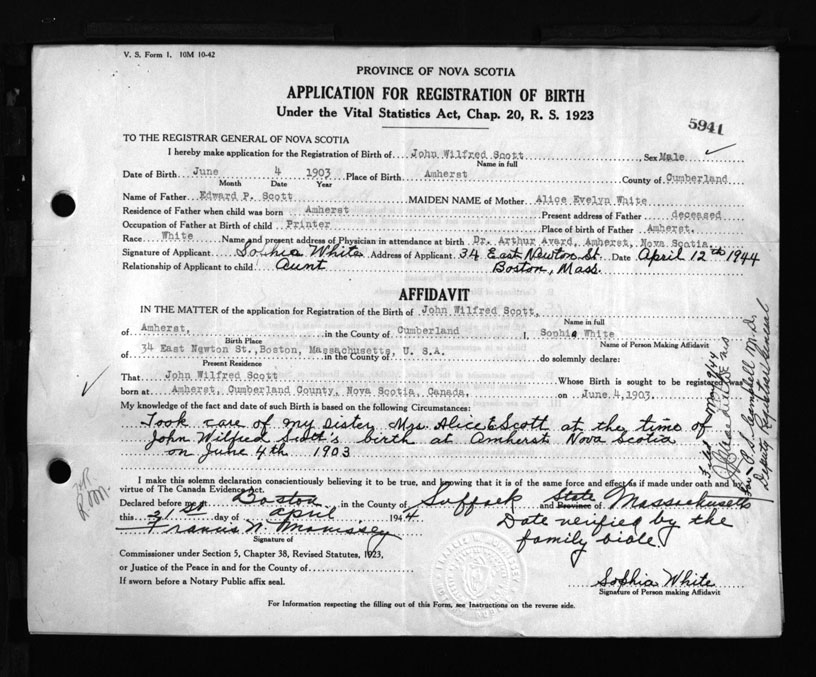 V. S. Form 1. 10M 10-42
PROVINCE OF NOVA SCOTIA
APPLICATION FOR REGISTRATION OF BIRTH
Under the Vital Statistics Act, Chap. 20, R. S. 1923
5941
TO THE REGISTRAR GENERAL OF NOVA SCOTIA
I hereby make application for the Registration of Birth of John Wilfred Scott, Sex Male
Name in full
Date of Birth June 4 1903 Place of Birth Amherst County of Cumberland
Month Date Year
Name of Father Edward P. Scott MAIDEN NAME of Mother Alice Evelyn White
Residence of Father when child was born Amherst Present address of Father deceased
Occupation of Father at Birth of child Printer Place of birth of Father Amherst.
Race White Name and present address of Physician in attendance at birth Dr. Arthur Avard, Amherst, Nova Scotia.
Signature of Applicant Sophia White Address of Applicant 34 East Newton St. Date April 12th 1944
Relationship of Applicant to child Aunt Boston, Mass.
AFFIDAVIT
IN THE MATTER of the application for Registration of the Birth of John Wilfred Scott,
Name in full
of Amherst, in the County of Cumberland I, Sophia White
Birth Place Name of Person Making Affidavit
of 34 East Newton St., Boston, Massachusetts, U. S.A. in the County of do solemnly declare:
Present Residence
That John Wilfred Scott Whose Birth is sought to be registered was
born at Amherst, Cumberland County, Nova Scotia, Canada. on June 4, 1903.
My knowledge of the fact and date of such Birth is based on the following Circumstances:
Took care of my sister Mrs. Alice E Scott at the time of
John Wilfred Scott's birth at Amherst Nova Scotia
on June 4th 1903
I make this solemn declaration conscientiously believing it to be true, and knowing it is of the same force and effect as if made under oath and by
virtue of The Canada Evidence Act.
Declared before me Boston in the County of Suffolk and Province State of Massachusetts
this 21st day of April 1944 Date verified by the
Francis N. Morrissey family bible.
Signature of
Commissioner under Section 5, Chapter 38, Revised Statutes, 1923,
or Justice of the Peace in and for the County of
If sworn before a Notary Public affix seal.
Sophia White
Signature of Person making Affidavit
For Information respecting the filling out of this Form, see Instructions on the reverse side.
Deputy Registrar General